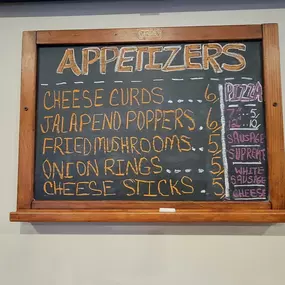 APPETIZERS
CHEESE CURDS .... 6
JALAPENO POPPERS. 6
FRIED MUSHROOMS... 5
ONION RINGS .... 5
CHEESE STICKS ... 5
PIZZA
SAUSAGE
SUPREME
WHITE
SAUSAGE
CHEESE